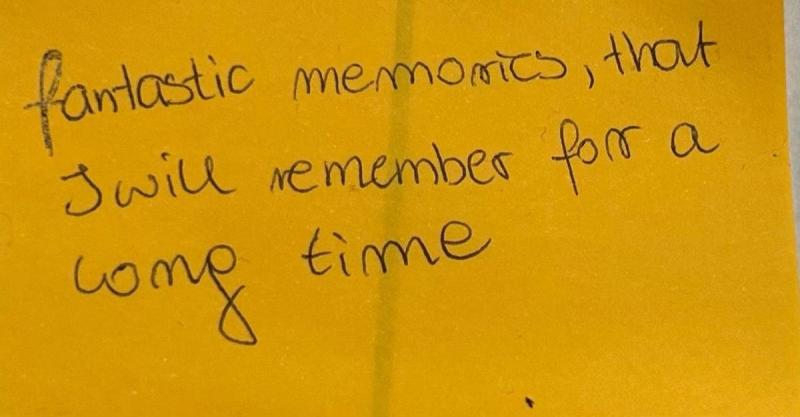 fantastic memories, that
I will remember for a
long time